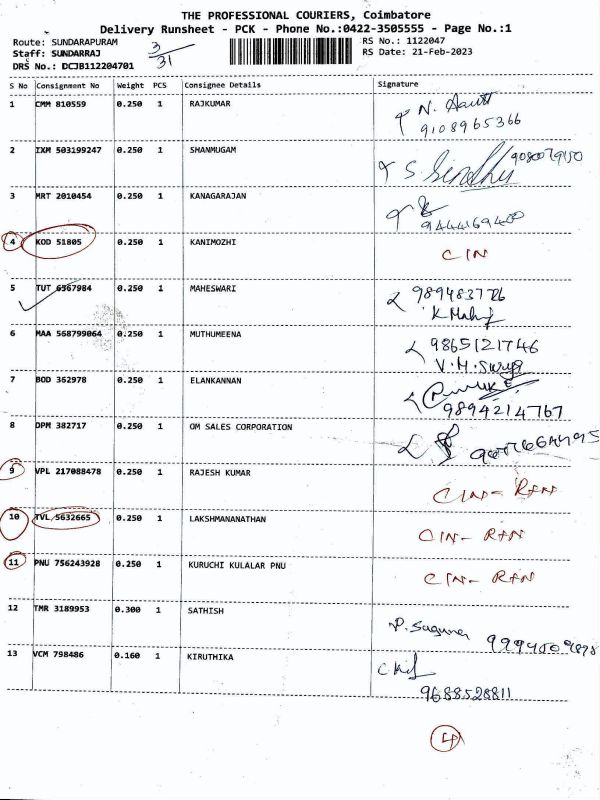 THE PROFESSIONAL COURIERS, Coimbatore
Delivery Runsheet - PCK - Phone No.:0422-3505555 - Page No.:1
Route: SUNDARAPURAM 3/31 RS No.: 1122047
Staff: SUNDARRAJ RS Date: 21-Feb-2023
DRS No.: DCJB112204701
S No Consignment No Weight PCS Consignee Details Signature
1 CMM 810559 0.250 1 RAJKUMAR N.
9108965366
2 IXM 503199247 0.250 1 SHANMUGAM S
3 MRT 2010454 0.250 1 KANAGARAJAN
9444169400
4 KOD 51805 0.250 1 KANIMOZHI CIN
5 TUT 6367984 0.250 1 MAHESWARI
6 MAA 568799064 0.250 1 MUTHUMEENA 9865121746
V.M.
7 BOD 362978 0.250 1 ELANKANNAN
9894214767
8 DPM 382717 0.250 1 OM SALES CORPORATION
9 VPL 217088478 0.250 1 RAJESH KUMAR CIN- RTN
10 TVL 5632665 0.250 1 LAKSHMANANATHAN CIN- RTN
11 PNU 756243928 0.250 1 KURUCHI KULALAR PNU CIN- RTN
12 TMR 3189953 0.300 1 SATHISH P. Suguna
13 VCM 798486 0.160 1 KIRUTHIKA
9688528811
4